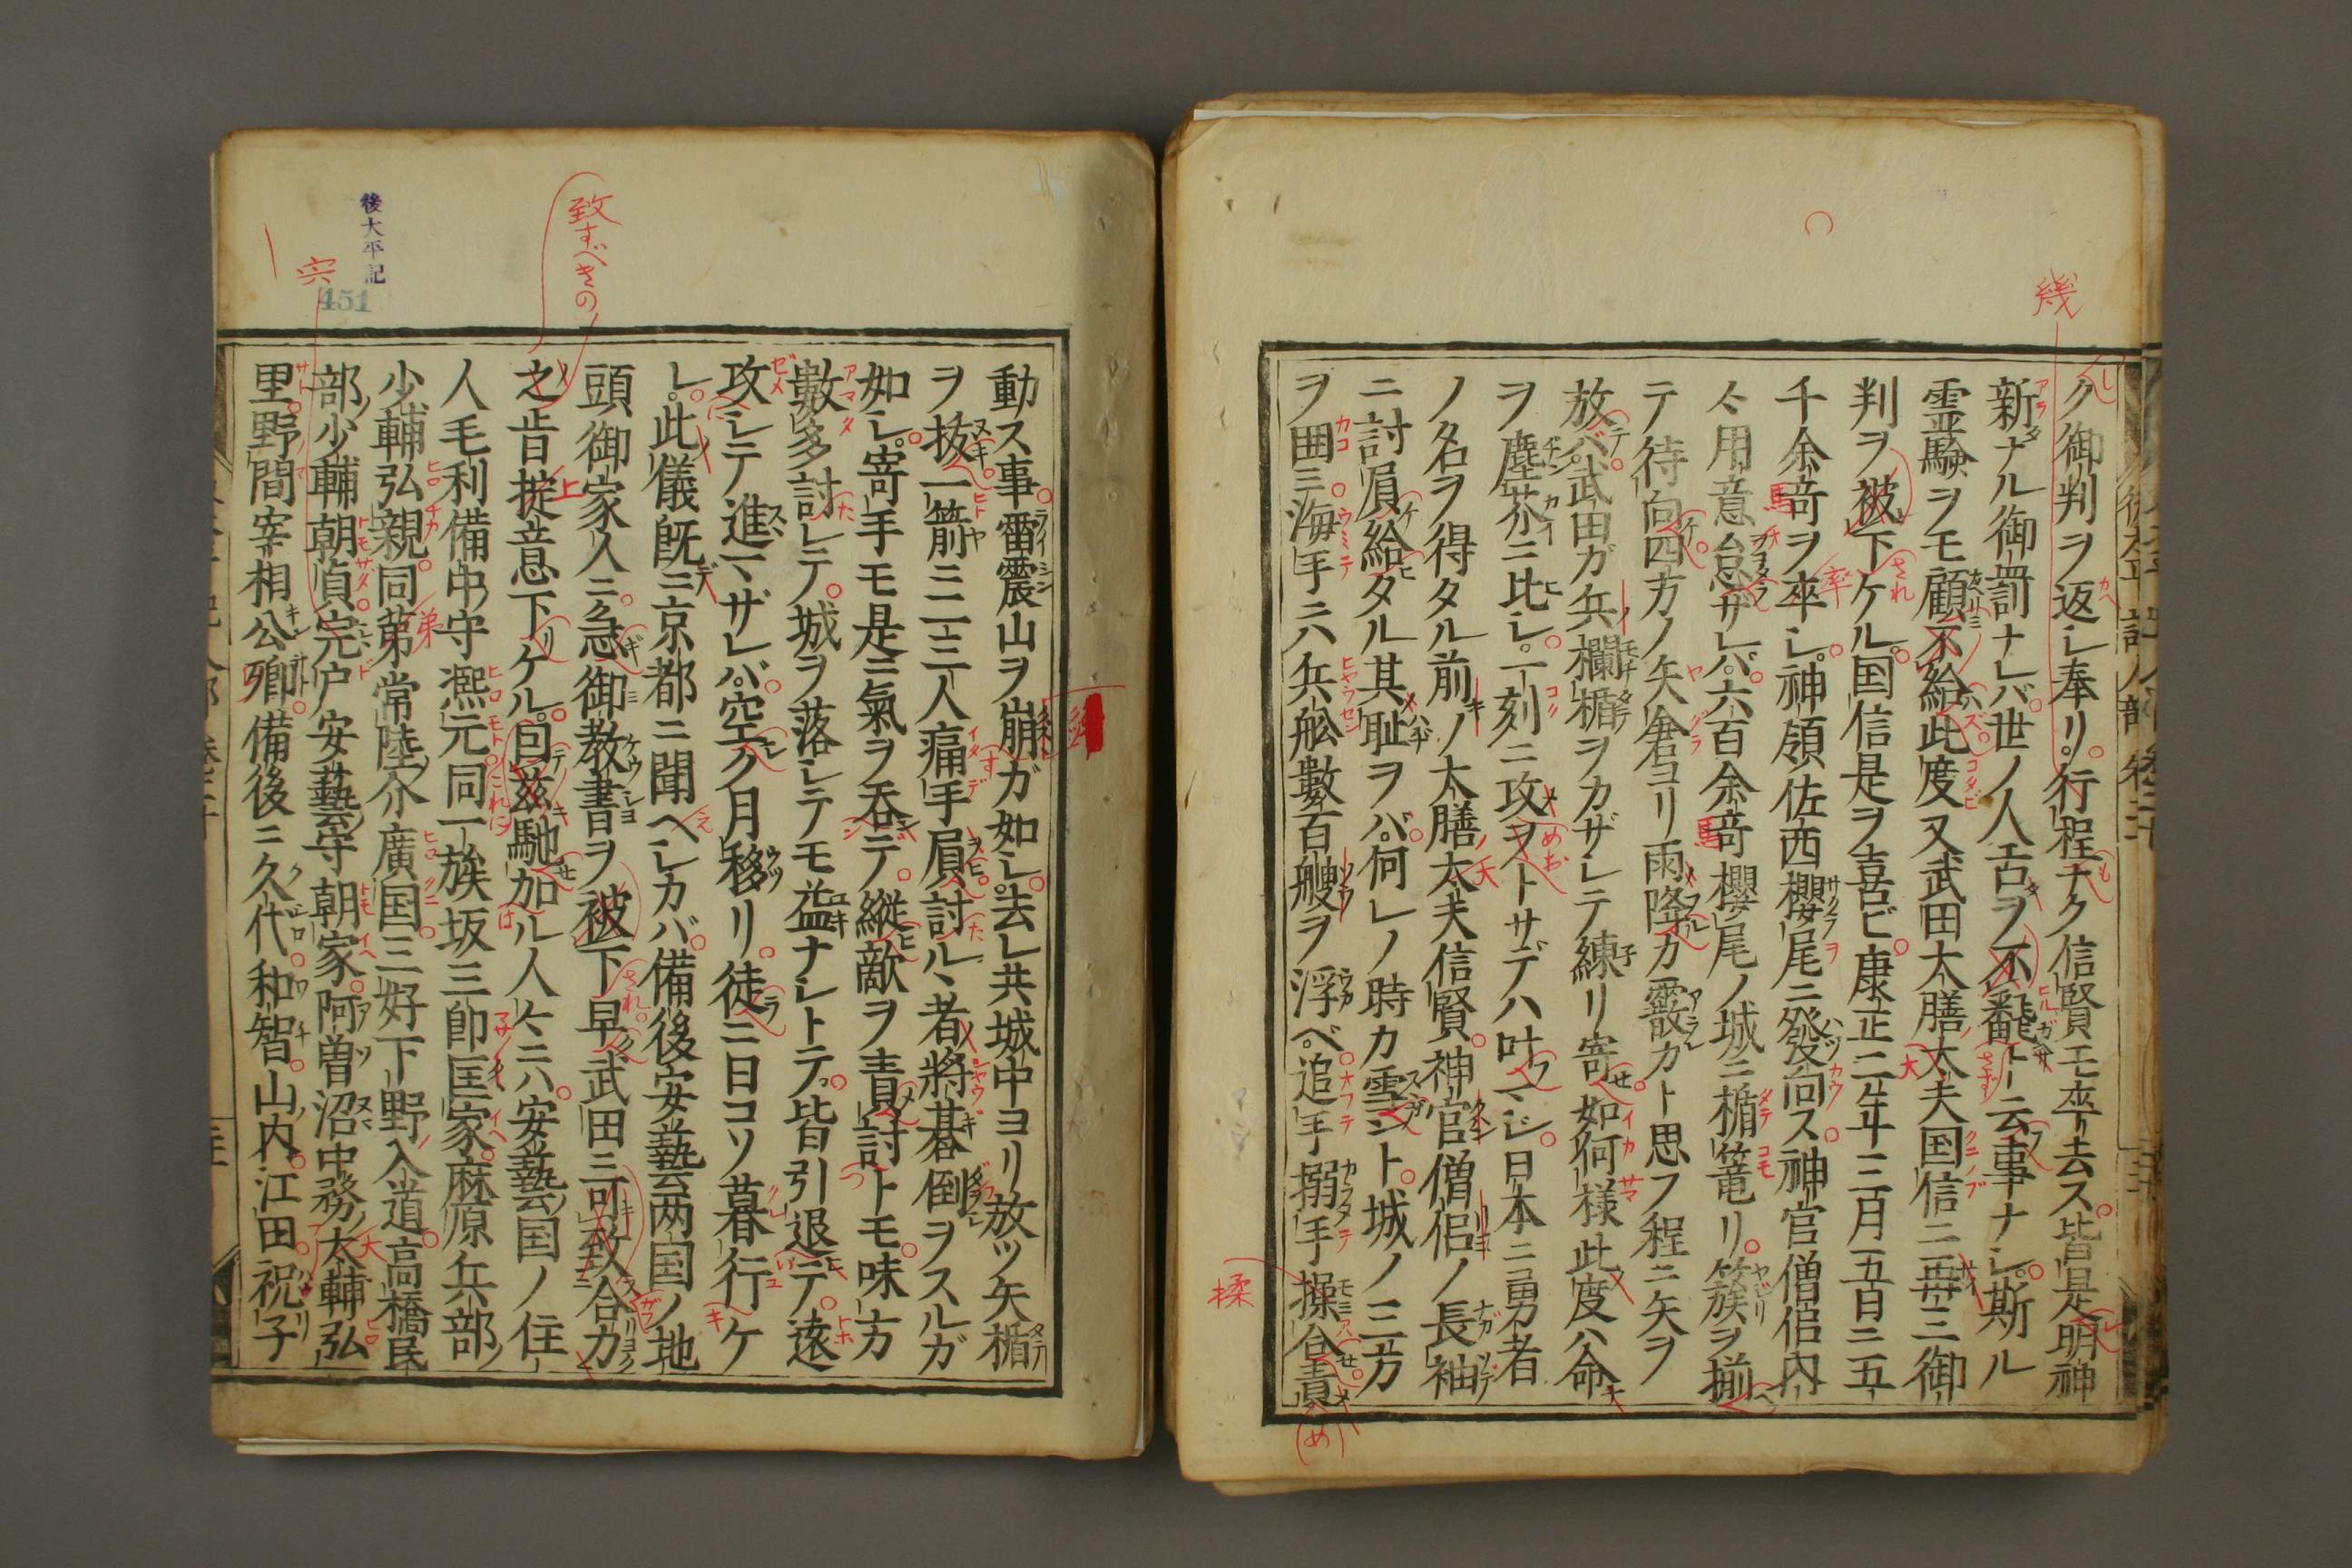 ク御判ヲ返シ奉リ。行程チク信賢モ卒去ス皆是明神
新ナル御罰ナレバ世ノ人舌ヲ不飜ト云事ナシ。斯ル
霊験ヲモ顧不給此度又武田大膳太夫国信ニ再三御
判ヲ被下ケル。国信是ヲ喜ビ康正二年三月五日二五
千余竒ヲ卒シ。神領佐西櫻尾ニ發向ス神官僧侶内
々用意怠ザレバ。六百余竒櫻尾ノ城ニ楯篭リ。簇ヲ揃
テ待向四方ノ矢倉ヨリ雨降カ霰カト思フ程ニ矢ヲ
放バ。武田ガ兵欄楯ヲカザシテ練リ寄如何様此度ハ命
ヲ塵芥ニ比シ。一刻ニ攻ヲトサデハ叶マジ。日本ニ勇者
ノ名ヲ得タル前ノ太膳太夫信賢。神官僧侶ノ長袖
ニ討負給タル其耻ヲバ。何レノ時カ雪ント。城ノ三方
ヲ囲三海手ニハ兵舩數百艘ヲ浮べ。追手搦手操合責
動ス事雷震山ヲ崩ガ如シ。去レ共城中ヨリ放ツ矢楯
ヲ抜一箭ニ二三人痛手屓討ル丶者將碁倒ヲスルガ
如シ。寄手モ是ニ氣ヲ呑デ。縦敵ヲ責討トモ。味方
數多討レテ。城ヲ落シテモ益ナシトテ。皆引退テ。遠
攻シテ進マザレバ。空ク月移リ。徒ニ日コソ暮行ケ
レ。此儀既ニ京都ニ聞ヘシカバ。備後安藝两国ノ地
頭御家人ニ急御教書ヲ被下早武田ニ可致合力
之旨掟意下ケル。囙茲馳加ル人々ニハ。安藝国ノ住
人毛利備中守凞元同一族坂三郎匡家。麻原兵部
少輔弘親。同第常陸介廣国。三好下野入道。高橋民
部少輔朝貞。完戸安藝守朝家。阿曽沼中務太輔弘
里。野間宰相公卿。備後ニ久代。和智。山内。江田。祝子
後太平記
451
幾
致すべきの
宍
揉